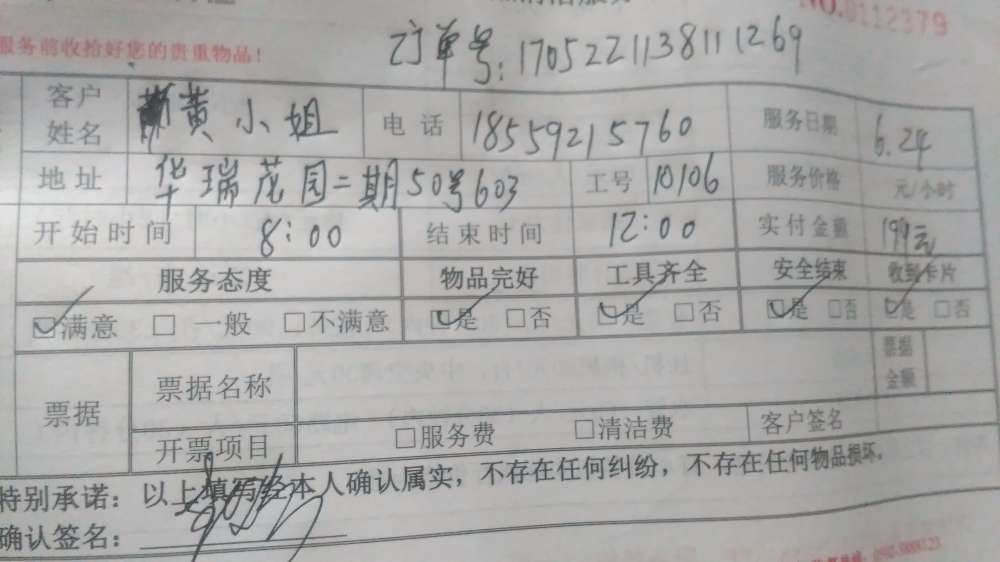 NO.0112379
服务前收拾好您的贵重物品!
订单号:1705221138111269
客户姓名 黄小姐 电话 18559215760 服务日期 6.24
地址 华瑞茂园二期50号603 工号 10106 服务价格 元/小时
开始时间 8:00 结束时间 12:00 实付金额 199元
服务态度 物品完好 工具齐全 安全结束 收到卡片
☑满意 □一般 □不满意 ☑是 □否 ☑是 □否 ☑是 □否 ☑是 □否
票据 票据名称 票据金额
开票项目 □服务费 □清洁费 客户签名
特别承诺:以上填写经本人确认属实,不存在任何纠纷,不存在任何物品损坏。
确认签名: